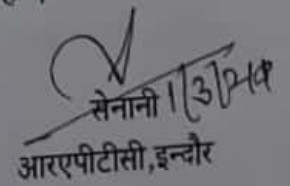 सेनानी 1/3/24
आरएपीटीसी,इन्दौर